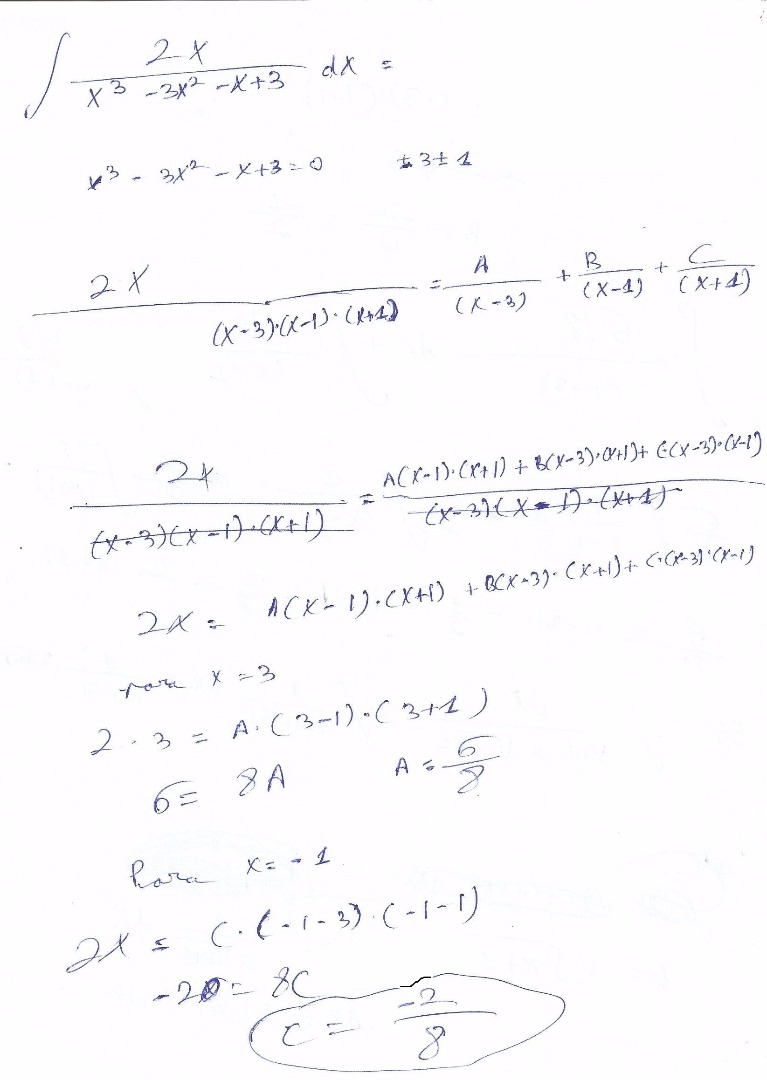 ∫ 2x / (x³ - 3x² - x + 3) dx =
x³ - 3x² - x + 3 = 0 ± 3 ± 1
2x / ((x-3)·(x-1)·(x+1)) = A/(x-3) + B/(x-1) + C/(x+1)
2x / ((x-3)(x-1)·(x+1)) = (A(x-1)·(x+1) + B(x-3)·(x+1) + C(x-3)·(x-1)) / ((x-3)(x-1)·(x+1))
2x = A(x-1)·(x+1) + B(x-3)·(x+1) + C·(x-3)·(x-1)
para x = 3
2·3 = A·(3-1)·(3+1)
6 = 8A A = 6/8
Para x = -1
2x = C·(-1-3)·(-1-1)
-2 = 8C
C = -2/8